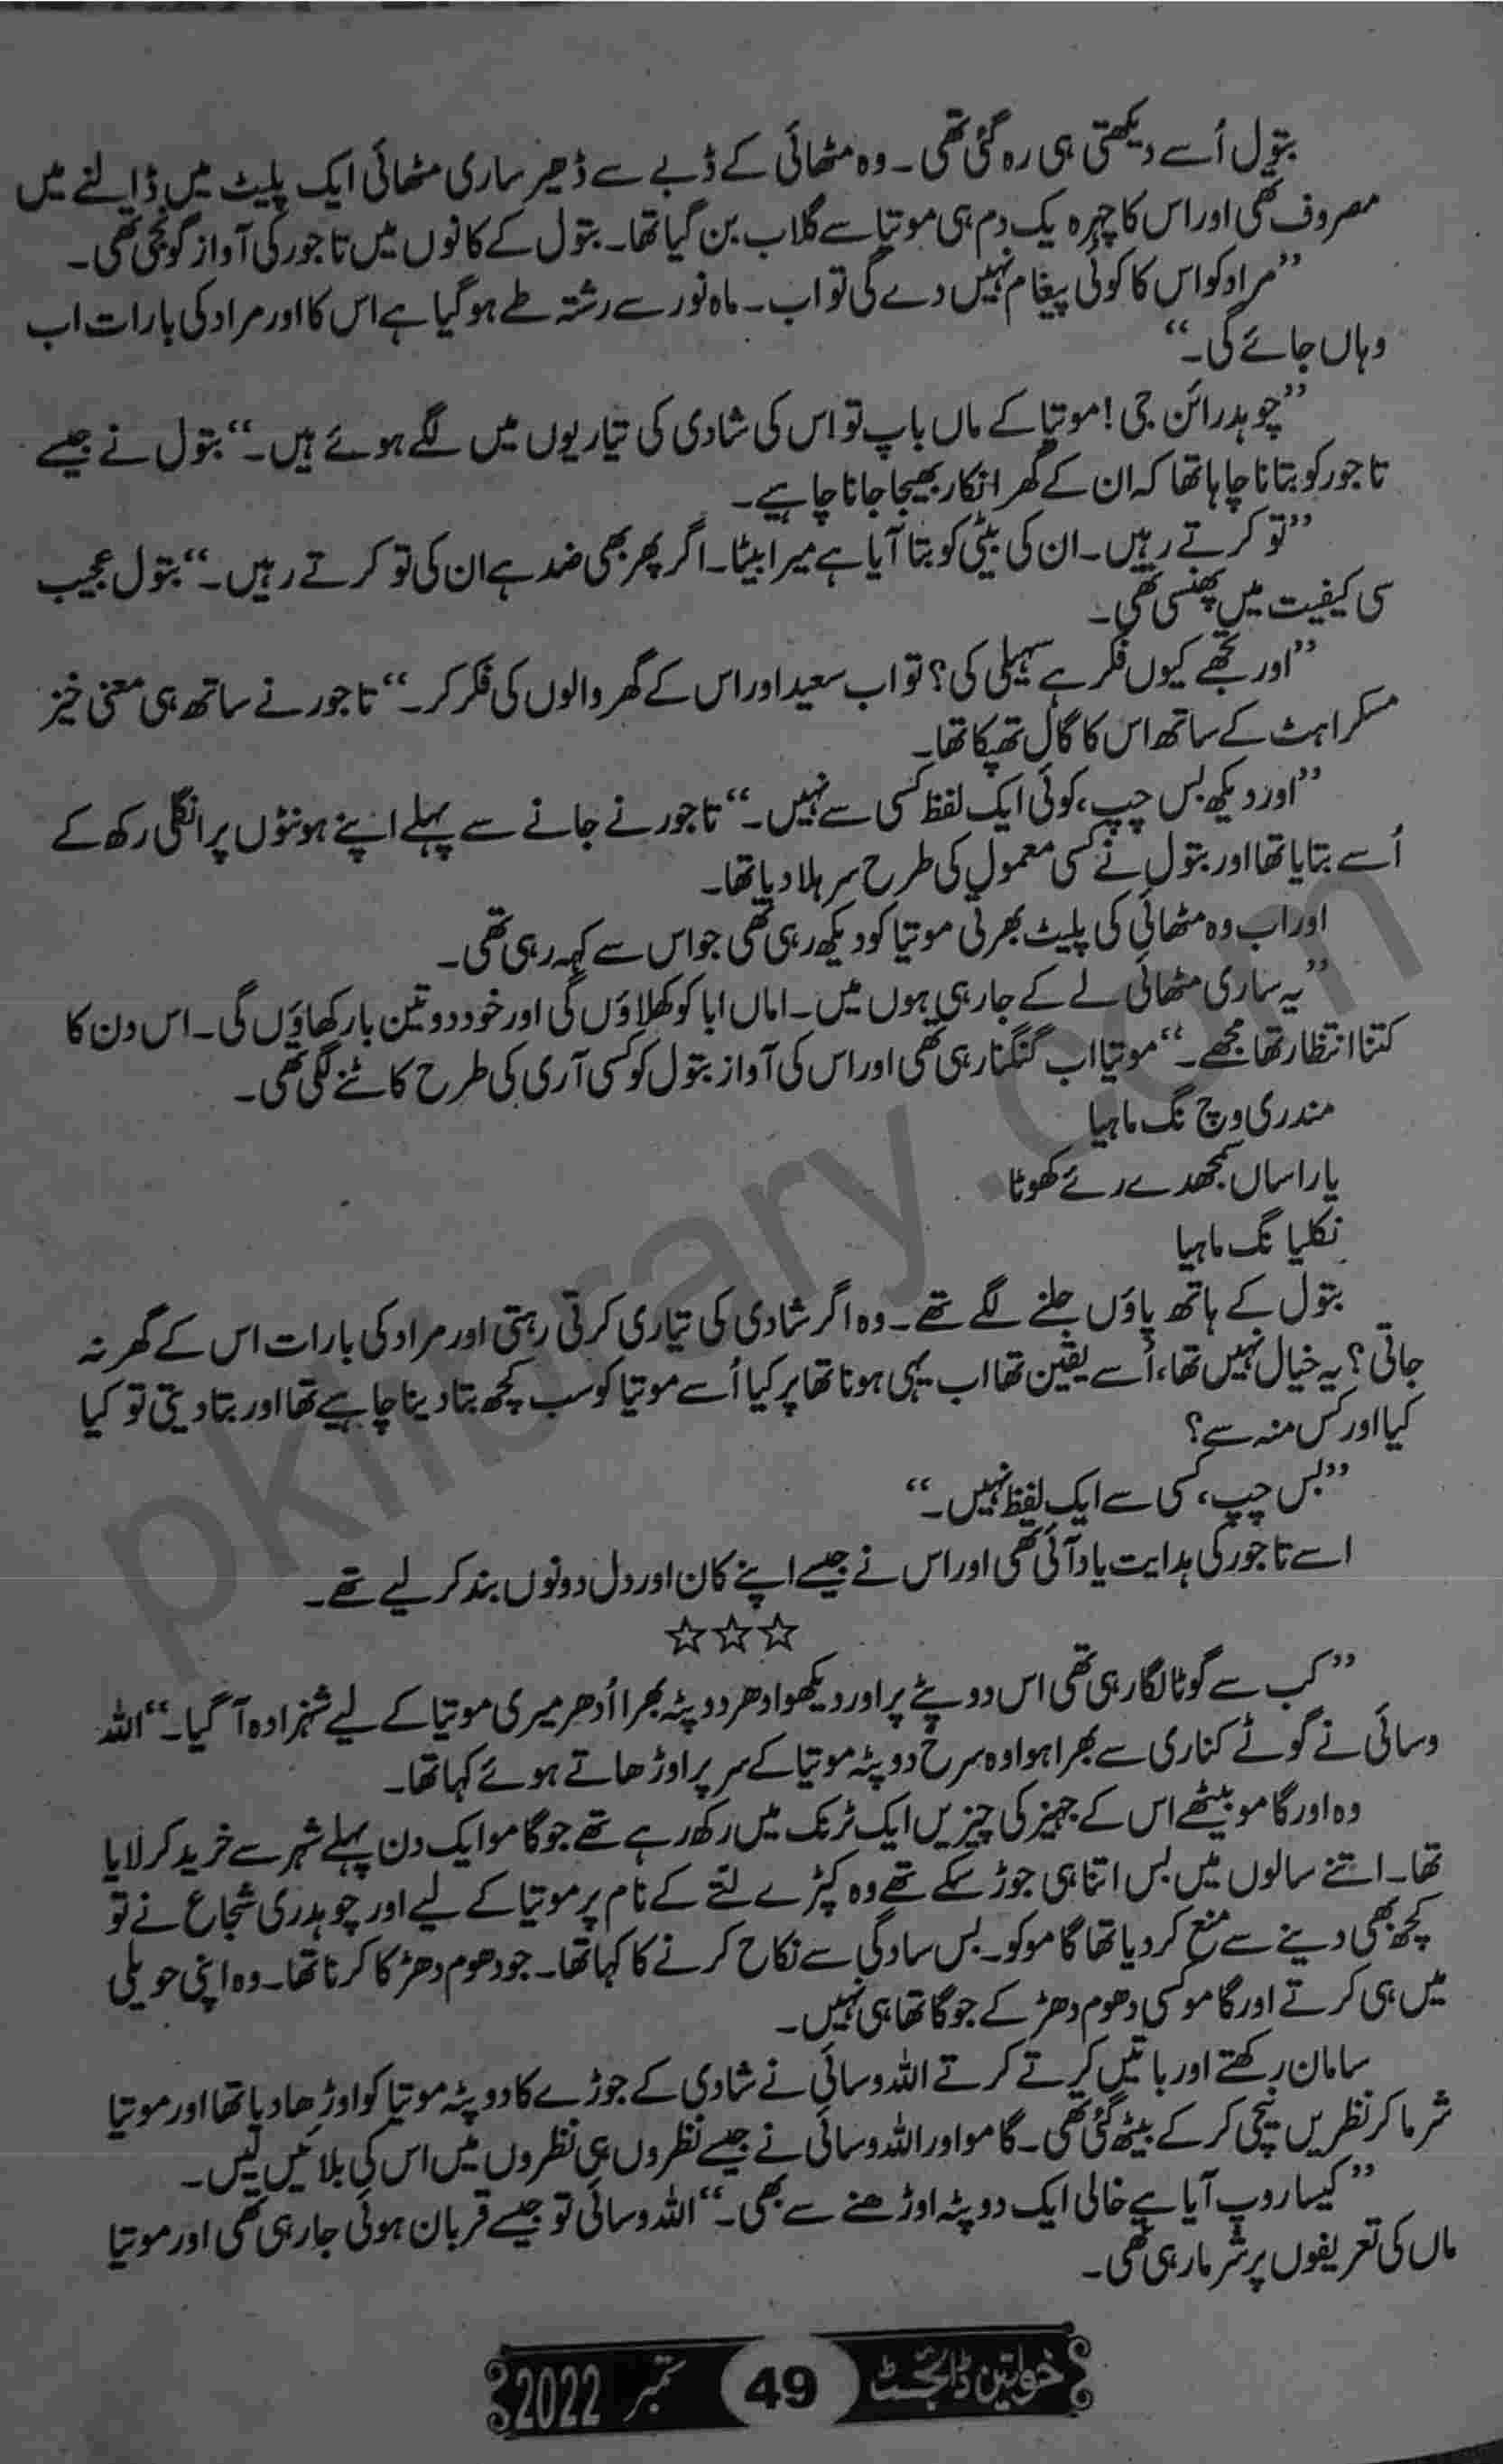 بتول اُسے دیکھتی ہی رہ گئی تھی۔ وہ مٹھائی کے ڈبے سے ڈھیر ساری مٹھائی ایک پلیٹ میں ڈالنے میں
مصروف تھی اور اس کا چہرہ یک دم ہی موتیا سے گلاب بن گیا تھا۔ بتول کے کانوں میں تاجور کی آواز گونجی تھی۔
”مراد کو اس کا کوئی پیغام نہیں دے گی تو اب۔ ماہ نور سے رشتہ طے ہو گیا ہے اس کا اور مراد کی بارات اب
وہاں جائے گی۔“
”چوہدرائن جی! موتیا کے ماں باپ تو اس کی شادی کی تیاریوں میں لگے ہوئے ہیں۔“ بتول نے جیسے
تاجور کو بتانا چاہا تھا کہ ان کے گھر انکار بھیجا جانا چاہیے۔
”تو کرتے رہیں۔ ان کی بیٹی کو بتا آیا ہے میرا بیٹا۔ اگر پھر بھی ضد ہے ان کی تو کرتے رہیں۔“ بتول عجیب
سی کیفیت میں پھنسی تھی۔
”اور تجھے کیوں فکر ہے سہیلی کی؟ تو اب سعید اور اس کے گھر والوں کی فکر کر۔“ تاجور نے ساتھ ہی معنی خیز
مسکراہٹ کے ساتھ اس کا گال تھپکا تھا۔
”اور دیکھ بس چپ، کوئی ایک لفظ کسی سے نہیں۔“ تاجور نے جانے سے پہلے اپنے ہونٹوں پر انگلی رکھ کے
اُسے بتایا تھا اور بتول نے کسی معمول کی طرح سر ہلا دیا تھا۔
اور اب وہ مٹھائی کی پلیٹ بھرتی موتیا کو دیکھ رہی تھی جو اس سے کہہ رہی تھی۔
”یہ ساری مٹھائی لے کے جا رہی ہوں میں۔ اماں ابا کو کھلاؤں گی اور خود دو تین بار کھاؤں گی۔ اس دن کا
کتنا انتظار تھا مجھے۔“ موتیا اب گنگنا رہی تھی اور اس کی آواز بتول کو کسی آری کی طرح کاٹنے لگی تھی۔
مندری وچ نگ ماہیا
یارا ساں سمجھدے رئے کھوٹا
نکلیا نگ ماہیا
بتول کے ہاتھ پاؤں جلنے لگے تھے۔ وہ اگر شادی کی تیاری کرتی رہتی اور مراد کی بارات اس کے گھر نہ
جاتی؟ یہ خیال نہیں تھا، اُسے یقین تھا اب یہی ہونا تھا پر کیا اُسے موتیا کو سب کچھ بتا دینا چاہیے تھا اور بتا دیتی تو کیا
کیا اور کس منہ سے؟
”بس چپ، کسی سے ایک لفظ نہیں۔“
اسے تاجور کی ہدایت یاد آئی تھی اور اس نے جیسے اپنے کان اور دل دونوں بند کر لیے تھے۔
☆☆☆
”کب سے گوٹا لگا رہی تھی اس دوپٹے پر اور دیکھو ادھر دوپٹہ بھرا اُدھر میری موتیا کے لیے شہزادہ آ گیا۔“ اللہ
وسائی نے گوٹے کناری سے بھرا ہوا وہ سرخ دوپٹہ موتیا کے سر پر اوڑھاتے ہوئے کہا تھا۔
وہ اور گامو بیٹھے اس کے جہیز کی چیزیں ایک ٹرنک میں رکھ رہے تھے جو گامو ایک دن پہلے شہر سے خرید کر لایا
تھا۔ اتنے سالوں میں بس اتنا ہی جوڑ سکے تھے وہ کپڑے لتے کے نام پر موتیا کے لیے اور چوہدری شجاع نے تو
کچھ بھی دینے سے منع کر دیا تھا گامو کو۔ بس سادگی سے نکاح کرنے کا کہا تھا۔ جو دھوم دھڑکا کرنا تھا۔ وہ اپنی حویلی
میں ہی کرتے اور گامو کسی دھوم دھڑکے جوگا تھا ہی نہیں۔
سامان رکھتے اور باتیں کرتے کرتے اللہ وسائی نے شادی کے جوڑے کا دوپٹہ موتیا کو اوڑھا دیا تھا اور موتیا
شرما کر نظریں نیچی کر کے بیٹھ گئی تھی۔ گامو اور اللہ وسائی نے جیسے نظروں ہی نظروں میں اس کی بلائیں لیں۔
”کیسا روپ آیا ہے خالی ایک دوپٹہ اوڑھنے سے بھی۔“ اللہ وسائی تو جیسے قربان ہوئی جا رہی تھی اور موتیا
ماں کی تعریفوں پر شرما رہی تھی۔
خواتین ڈائجسٹ 49 ستمبر 2022
pklibrary.com